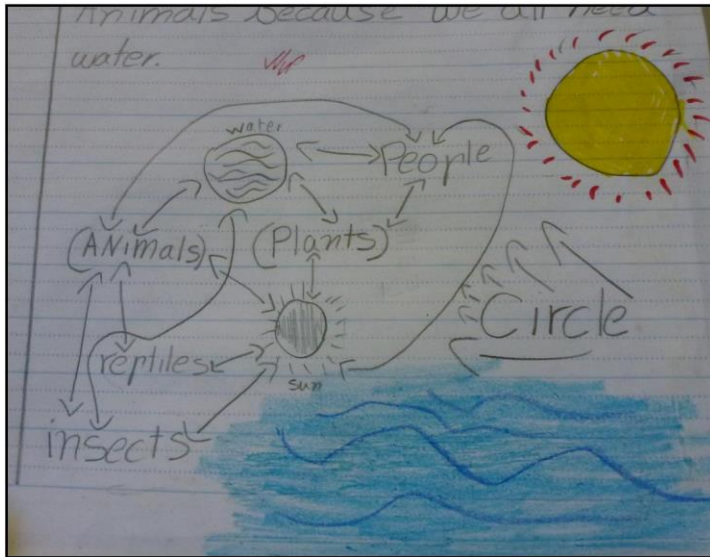 Animals because we all need
water.
water
People
(ANimals)
(Plants)
Circle
reptiles
sun
insects